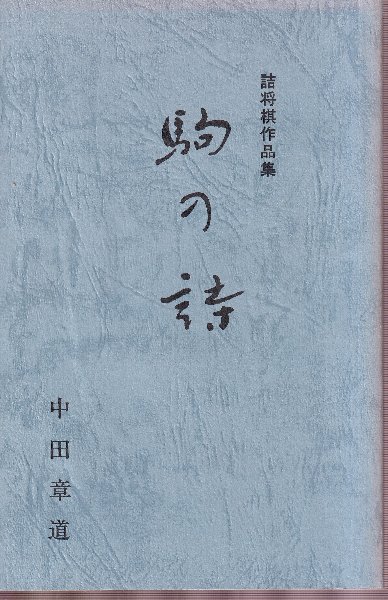 詰将棋作品集
駒の詩
中田章道